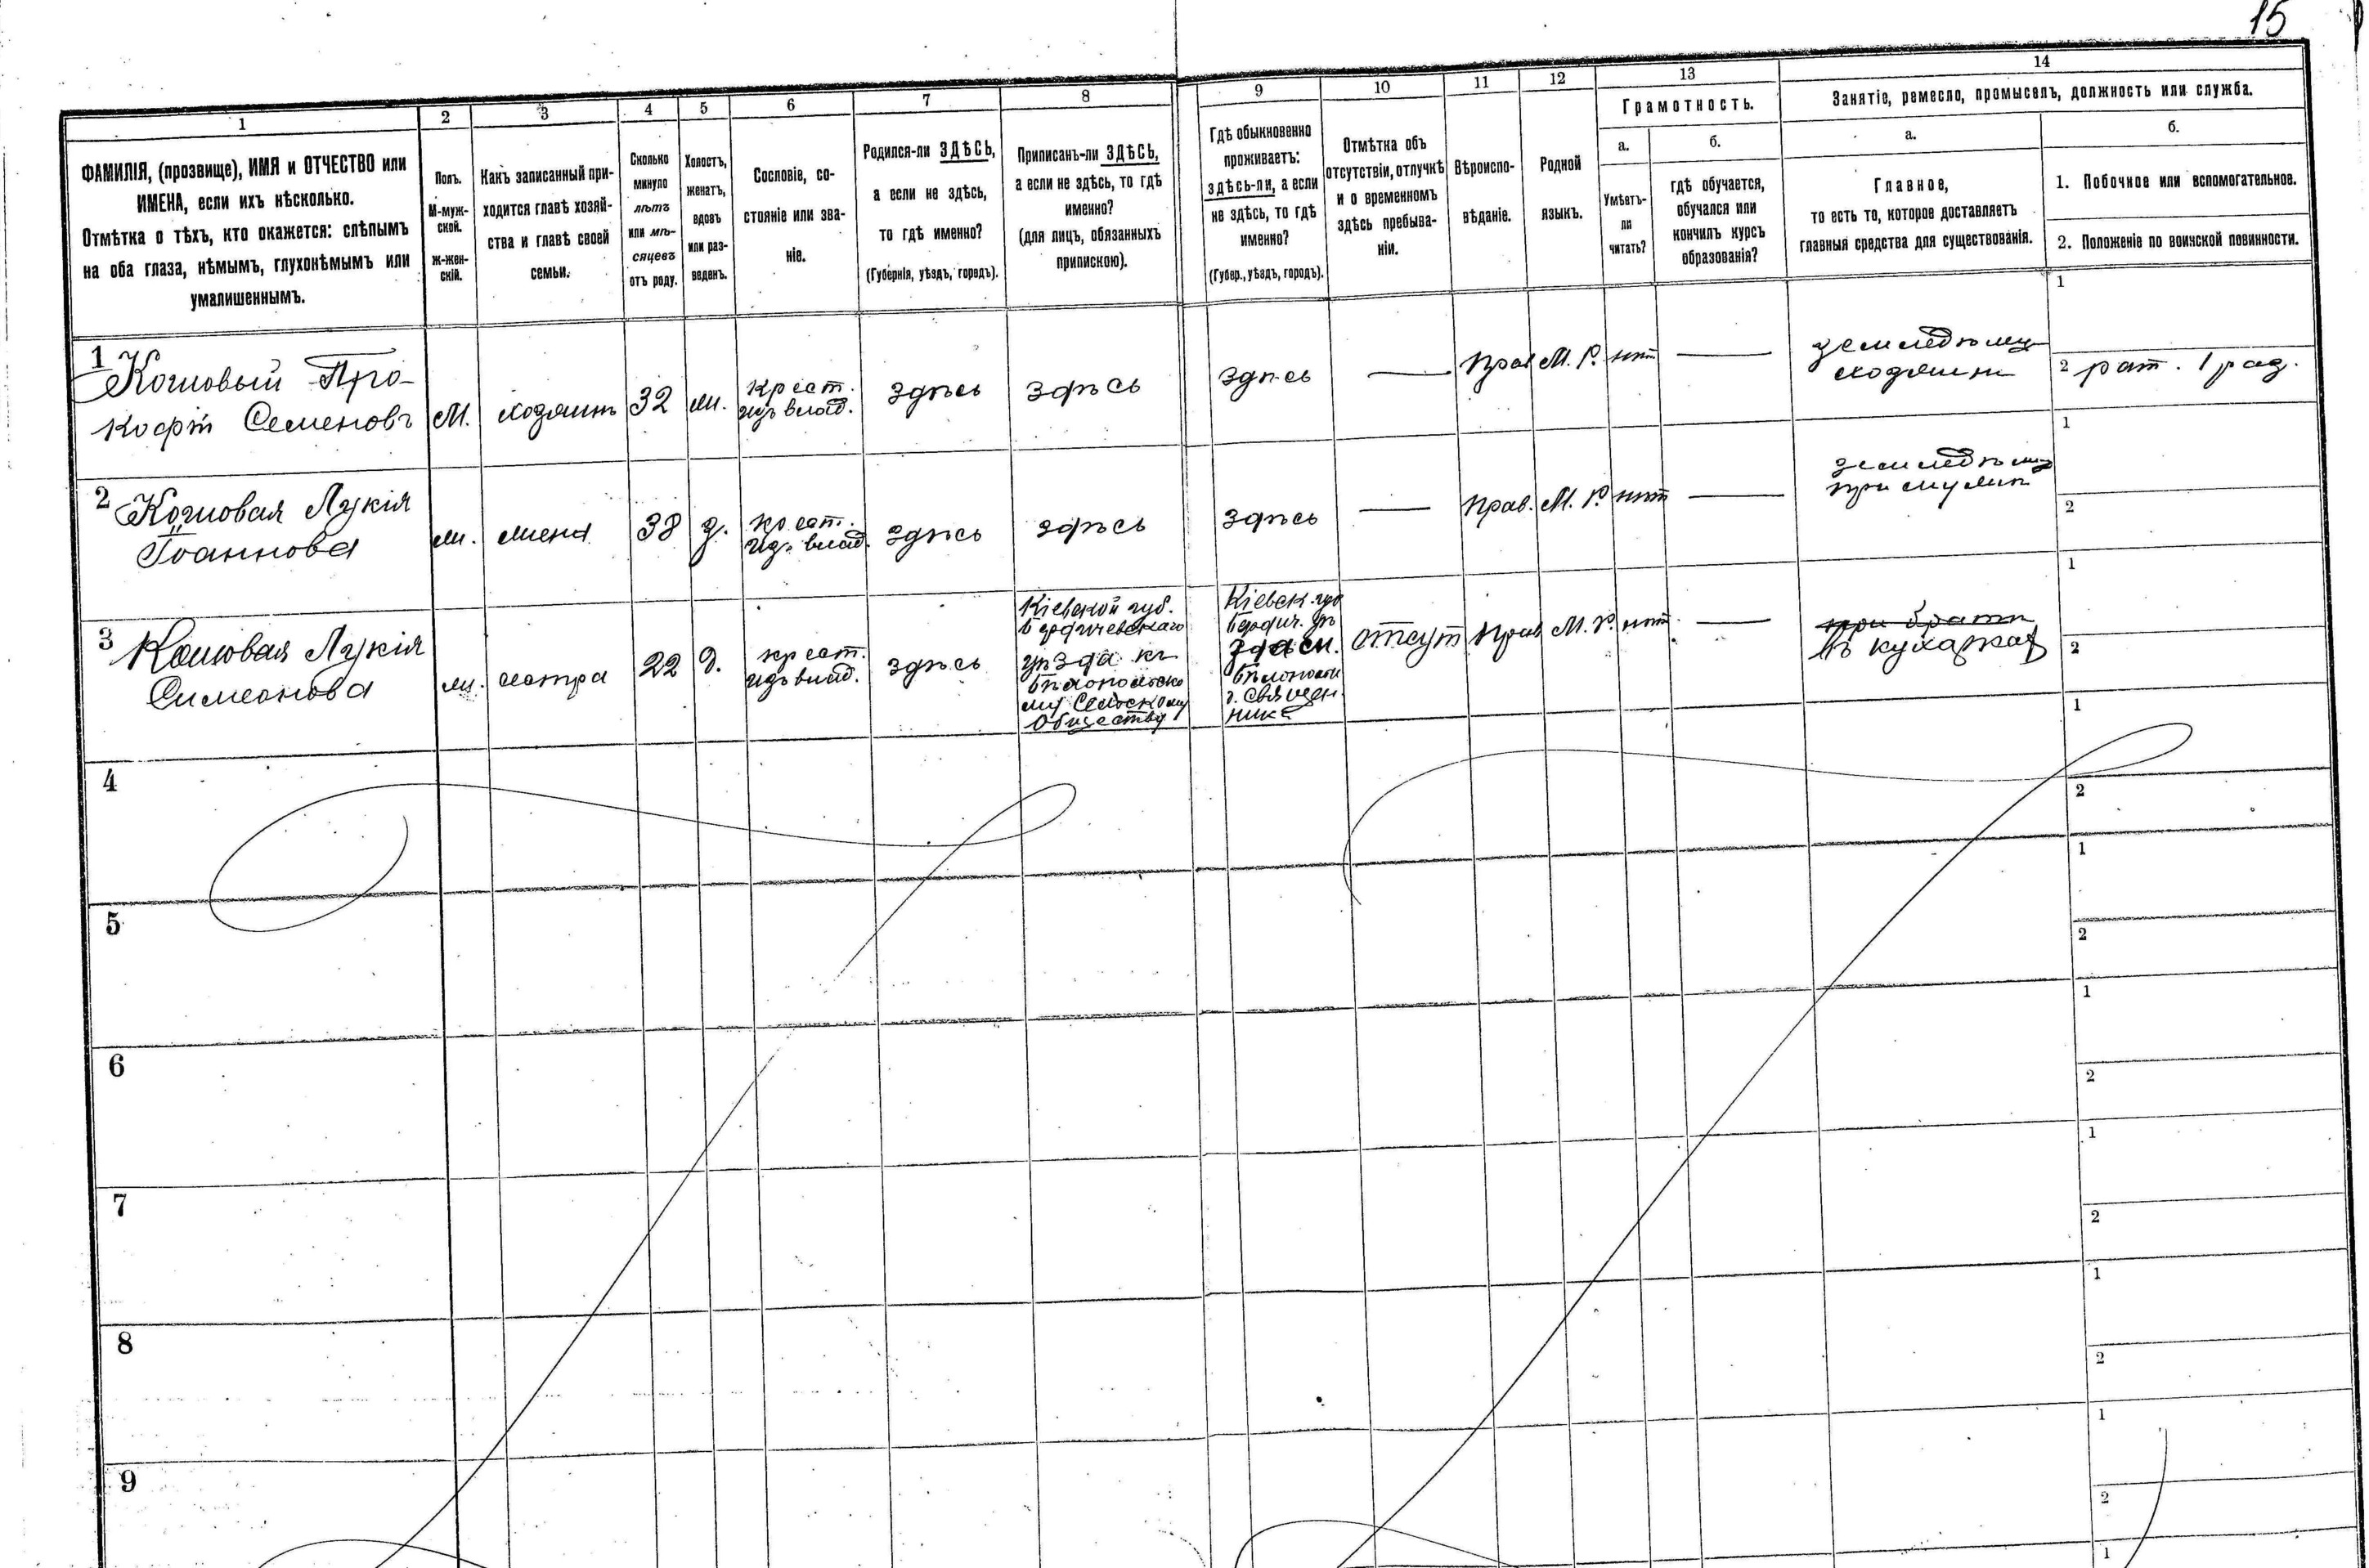 15
1
2
3
4
5
6
7
8
9
10
11
12
13
14
ФАМИЛІЯ, (прозвище), ИМЯ и ОТЧЕСТВО или
ИМЕНА, если ихъ нѣсколько.
Отмѣтка о тѣхъ, кто окажется: слѣпымъ
на оба глаза, нѣмымъ, глухонѣмымъ или
умалишеннымъ.
Полъ.
М-муж-
ской.
Ж-жен-
скій.
Какъ записанный при-
ходится главѣ хозяй-
ства и главѣ своей
семьи.
Сколько
минуло
лѣтъ
или мѣ-
сяцевъ
отъ роду.
Холостъ,
женатъ,
вдовъ
или раз-
веденъ.
Сословіе, со-
стояніе или зва-
ніе.
Родился-ли ЗДѢСЬ,
а если не здѣсь,
то гдѣ именно?
(Губернія, уѣздъ, городъ).
Приписанъ-ли ЗДѢСЬ,
а если не здѣсь, то гдѣ
именно?
(для лицъ, обязанныхъ
припискою).
Гдѣ обыкновенно
проживаетъ:
здѣсь-ли, а если
не здѣсь, то гдѣ
именно?
(Губер., уѣздъ, городъ).
Отмѣтка объ
отсутствіи, отлучкѣ
и о временномъ
здѣсь пребыва-
ніи.
Вѣроиспо-
вѣданіе.
Родной
языкъ.
Грамотность.
а.
Умѣетъ-
ли
читать?
б.
гдѣ обучается,
обучался или
кончилъ курсъ
образованія?
Занятіе, ремесло, промыселъ, должность или служба.
а.
Главное,
то есть то, которое доставляетъ
главныя средства для существованія.
б.
1. Побочное или вспомогательное.
2. Положеніе по воинской повинности.
1
Кошовый Про-
кофій Семеновъ
М.
хозяинъ
32
ж.
крест.
изъ влад.
здѣсь
здѣсь
здѣсь
—
прав
М. Р.
нѣт
—
земледѣлец
хозяинъ
1
2 рат. 1 раз.
2
Кошовая Лукія
Іоаннова
ж.
жена
38
з.
крест.
изъ влад.
здѣсь
здѣсь
здѣсь
—
прав.
М. Р.
нѣт
—
земледѣлец
при мужѣ
1
2
3
Кошовая Лукія
Симеонова
ж.
сестра
22
д.
крест.
изъ влад.
здѣсь
Кіевской губ.
Бердичевскаго
уѣзда къ
Бѣлополсько
му Сельскому
Обществу
Кіевск. губ
Бердич. уѣ
здѣсь.
Бѣлополь
у Священ
ника
отсут
прав
М. Р.
нѣт
—
при братѣ
въ кухаркахъ
1
2
4
1
2
5
1
2
6
1
2
7
1
2
8
1
2
9
1
2
1